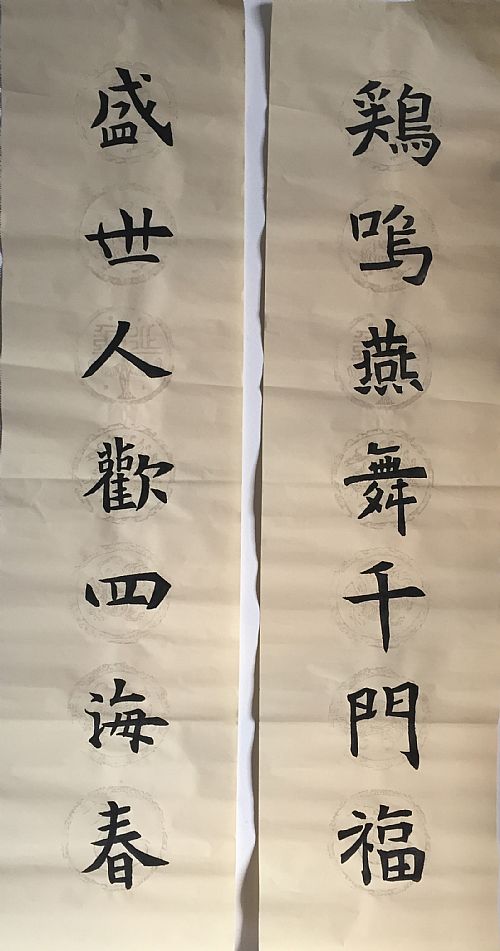 鶏鳴燕舞千門福
盛世人歡四海春